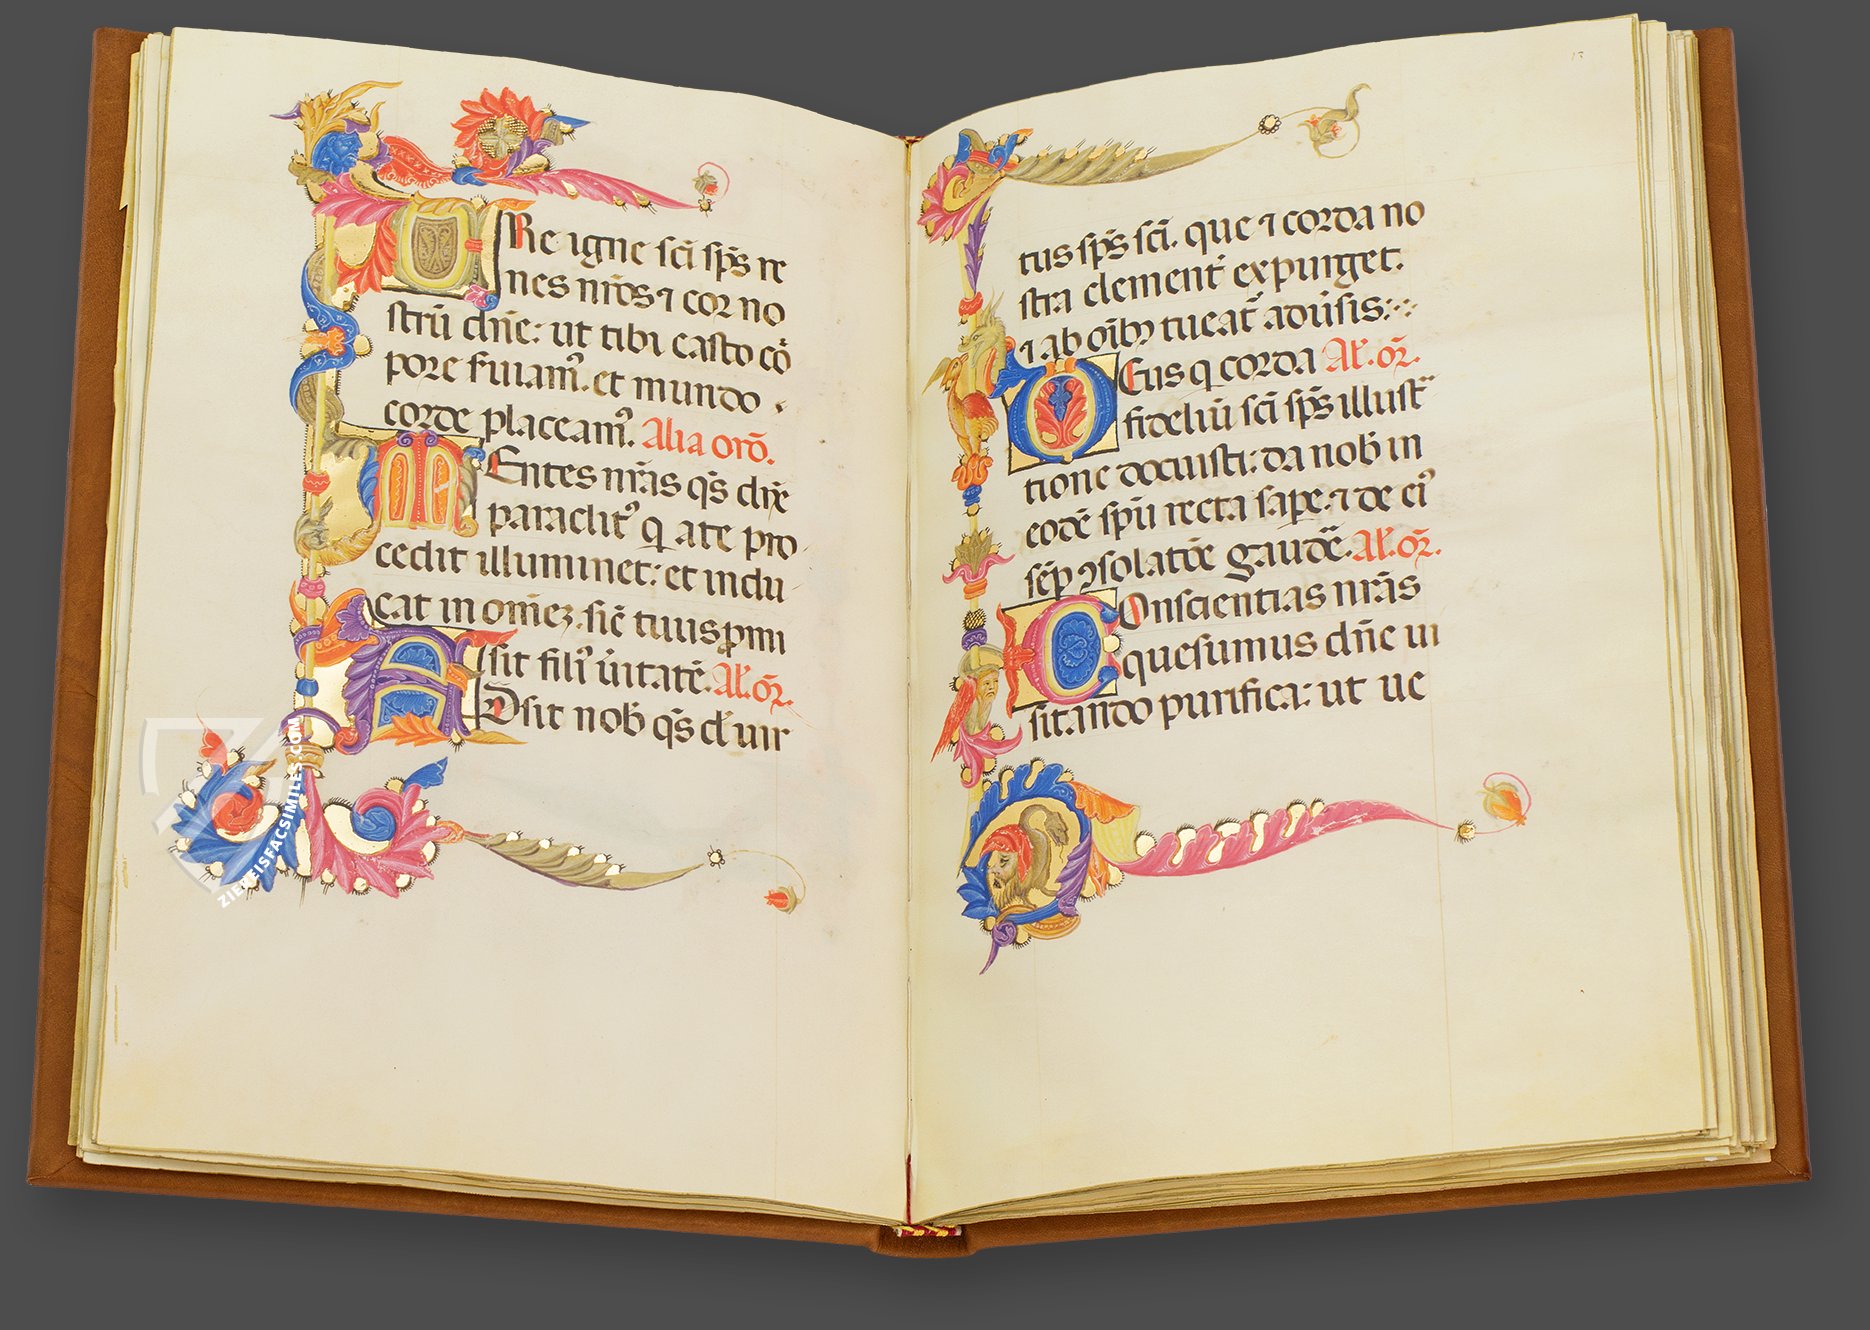 URe igne scī sp̄s re
nes nr̄os ⁊ cor no
strū dn̄e: ut tibi casto cō
pore s̄uiam᷒. et mundo
corde placeam᷒. Alia orō.
MEntes nr̄as q̄s dn̄e
paraclit᷒ q̄ a te pro
cedit illuminet: et indu
cat in om̄eꝫ. sic̄ tuus ꝓmi
sit fili᷒ ūitatē. Al'. or̄.
ADsit nob̄ q̄s dn̄e uir
13
tus sp̄s scī. que ⁊ corda no
stra clement̄ expurget.
⁊ ab oīb᷒ tueat̄ adūsis:
DEus q̄ corda Al'. or̄.
fideliū scī sp̄s illust̄
tione docuisti: da nob̄ in
eodē sp̄u recta sap̄e: ⁊ de ei᷒
sēp ꝯsolatōe gaudē̄. Al'. or̄.
COnscientias nr̄as
quesumus dn̄e ui
sitando purifica: ut ue
ZIEREISFACSIMILES.COM